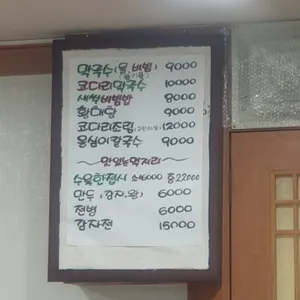 막국수(물,비빔) 9000
코다리막국수 10000
새싹비빔밥 8000
황태탕 9000
코다리조림 12000
옹심이칼국수 9000
맛있는먹거리
수육한접시 소16000 중22000
만두 (감자,왕) 6000
전병 6000
감자전 15000